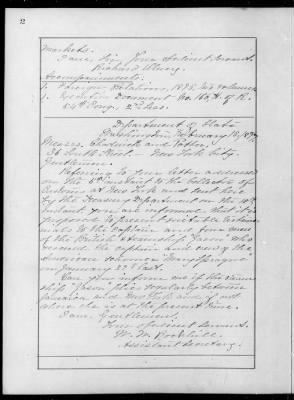 12
markets.
I am, Sir, Your obedient servant,
Richard Olney.
Accompaniments:
1. Foreign Relations, 1895, two volumes
2. Document No. 160, H. of R.
54th Cong., 2d Sess.
Department of State
Washington, February 18, 1897.
Messrs. Chadwick and
36 South Street. New York City.
Gentlemen:
Referring to your letter addressed
on the 5th instant to the Collector of
Customs at New York and sent here
by the Treasury Department on the
instant, you are informed that it is
proposed to present suitable testimo-
nials to the captain and four men
of the British steamship "Jason" who
rescued the captain and crew of the
American schooner "Mary
on January 22d last.
Can you inform me if the steam-
ship "Jason" plies regularly between
Jamaica and New York and, if not,
where she is at the present time.
I am, Gentlemen,
Your obedient servant,
W. W. Rockhill,
Assistant Secretary.